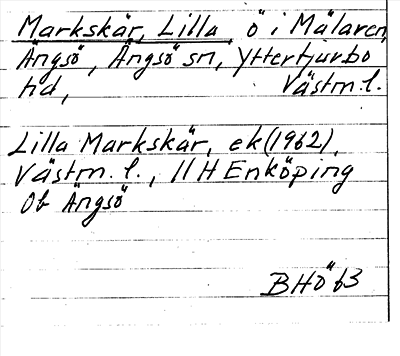 Markskär, Lilla, ö i Mälaren,
Ängsö, Ängsö sn, Yttertjurbo
hd, Västm.l.
Lilla Markskär, ek(1962),
Västm. l., 11 H Enköping
Ob Ängsö
BHÖ 63